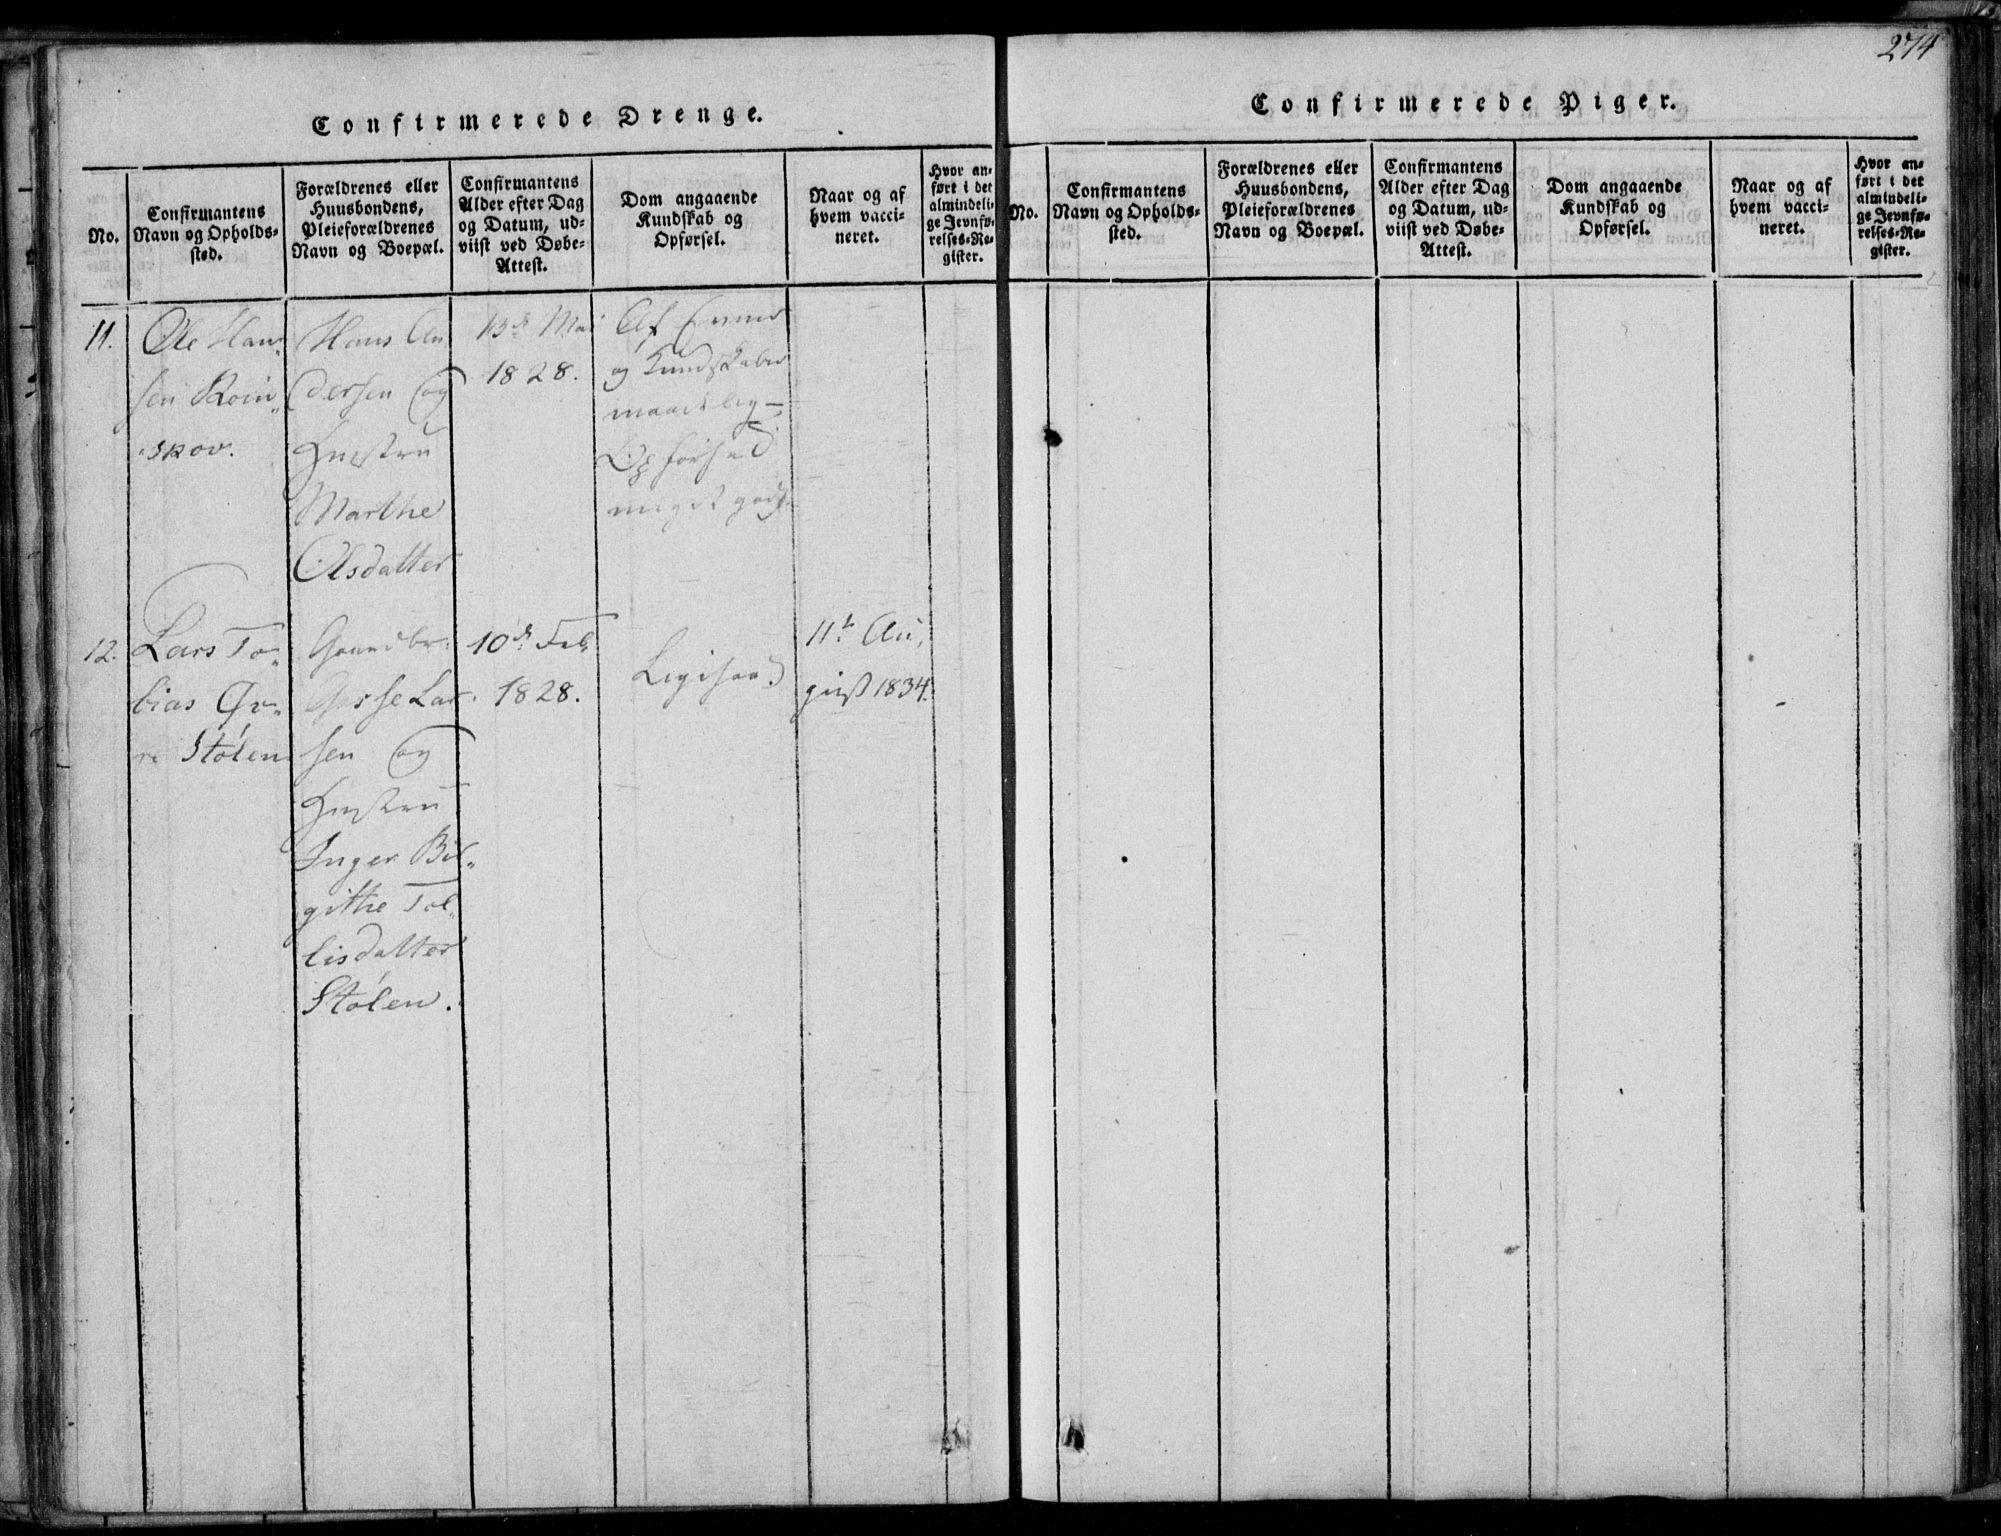 274
Confirmerede Drenge.
No.
Confirmantens
Navn og Opholds-
sted.
Forældrenes eller
Huusbondens,
Pleieforældrenes
Navn og Boepæl.
Confirmantens
Alder efter Dag
og Datum, ud-
viist ved Døbe-
Attest.
Dom angaaende
Kundskab og
Opførsel.
Naar og af
hvem vacci-
neret.
Hvor an-
ført i det
almindeli-
ge Jevnfø-
relses-Re-
gister.
11.
Ole Han-
sen
skov.
Hans An
dersen og
Hustru
Marthe
Olsdatter
13de Mai
1828.
Af Evner
og Kundskaber
maadelig -
Opførsel
meget god
12.
Lars To-
bias Øv-
re Stølen
Gaardbr:
Lar
sen og
Hustru
Inger Bir-
githe Tol-
lisdatter
Stølen.
10de Feb.
1828.
Ligesaa
11te Au-
gust 1834.
Confirmerede Piger.
No.
Confirmantens
Navn og Opholds-
sted.
Forældrenes eller
Huusbondens,
Pleieforældrenes
Navn og Boepæl.
Confirmantens
Alder efter Dag
og Datum, ud-
viist ved Døbe-
Attest.
Dom angaaende
Kundskab og
Opførsel.
Naar og af
hvem vacci-
neret.
Hvor an-
ført i det
almindeli-
ge Jevnfø-
relses-Re-
gister.